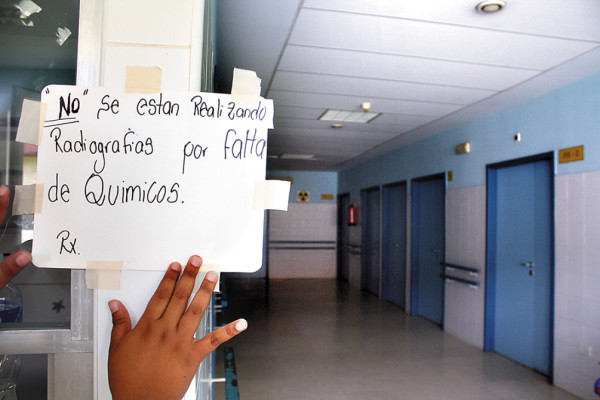 "NO" Se estan Realizando
Radiografias por falta
de Quimicos.
Rx.